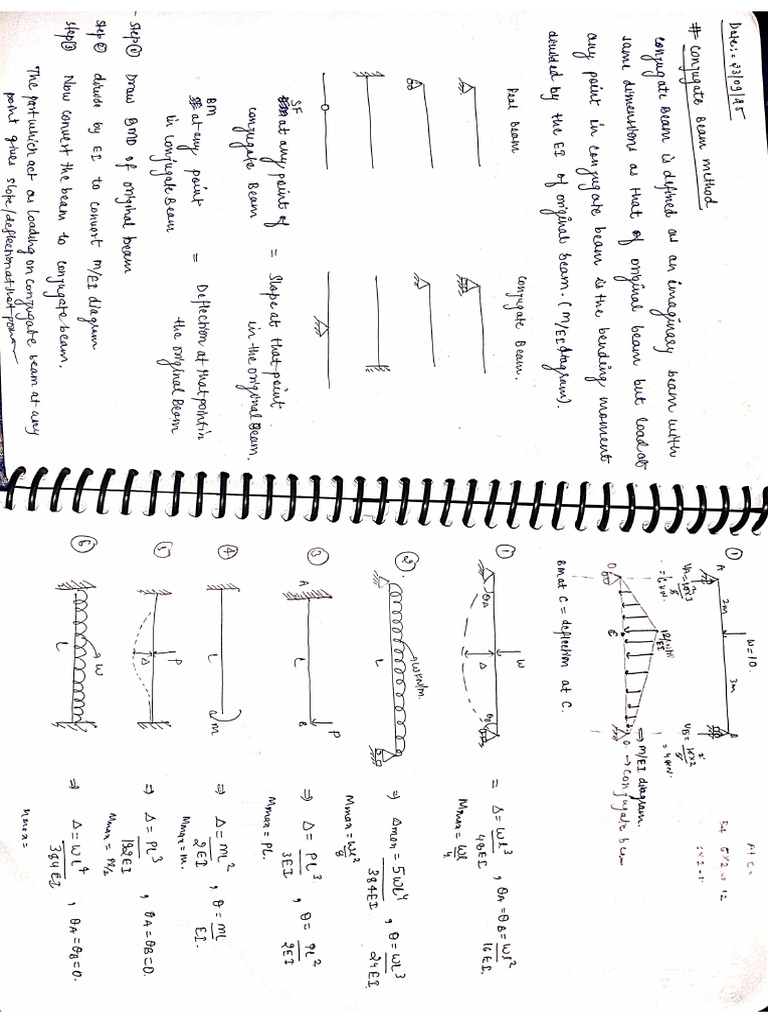 Date:- 23/09/25
# Conjugate Beam method
conjugate Beam is defined as an imaginary beam with
same dimensions as that of original beam but load at
any point in conjugate beam is the bending moment
divided by the EI of original beam. (M/EI diagram).
Real Beam
Conjugate Beam.
SF at any point of conjugate Beam = Slope at that point in the original Beam.
BM at any point in conjugate Beam = Deflection at that point in the original Beam
- Step ① Draw BMD of original beam
step ② divide by EI to convert M/EI diagram
step ③ Now convert the beam to conjugate beam.
The part which act as loading on conjugate beam at any
point gives slope/deflection at that point
①
A
2m
W=10.
3m
B
VA = 10×3/5
= 6 kN.
VB = 10×2/5
= 4 kN.
At C =
6×2 = 12
12/EI
⇒ M/EI diagram.
C
→ conjugate beam
BM at C = deflection at C.
①
θA
W
Δ
θB
= Δ = WL³/48EI , θA = θB = WL²/16EI.
Mmax = WL/4
②
W kN/m.
L
⇒ Δmax = 5WL⁴/384EI , θ = WL³/24EI.
Mmax = WL²/8
③
A
L
P
B
⇒ Δ = PL³/3EI , θ = PL²/2EI
Mmax = PL.
④
L
m
⇒ Δ = ML²/2EI , θ = ML/EI.
Mmax = M.
⑤
P
Δ
⇒ Δ = PL³/192EI , θA = θB = 0.
Mmax = PL/2
⑥
W
L
⇒ Δ = WL⁴/384EI , θA = θB = 0.
Mmax =